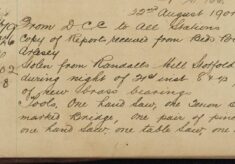 22nd August 190
From D C C to All Stations
Copy of Reports received from Beds
Arlesey
Stolen from Randalls Mill Stotfold
during night of 21st inst 8 &
of new brass bearing
Tools, One hand saw, one Tenon s
marked Bridge, One pair of pinc
one hand saw, one table saw, one